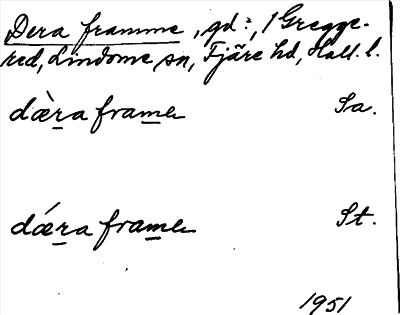 Dera framme, gd:, 1 Gregge-
red, Lindome sn, Fjäre hd, Hall. l.
dæ̀ra frame Sa.
dǽra frame St.
1951